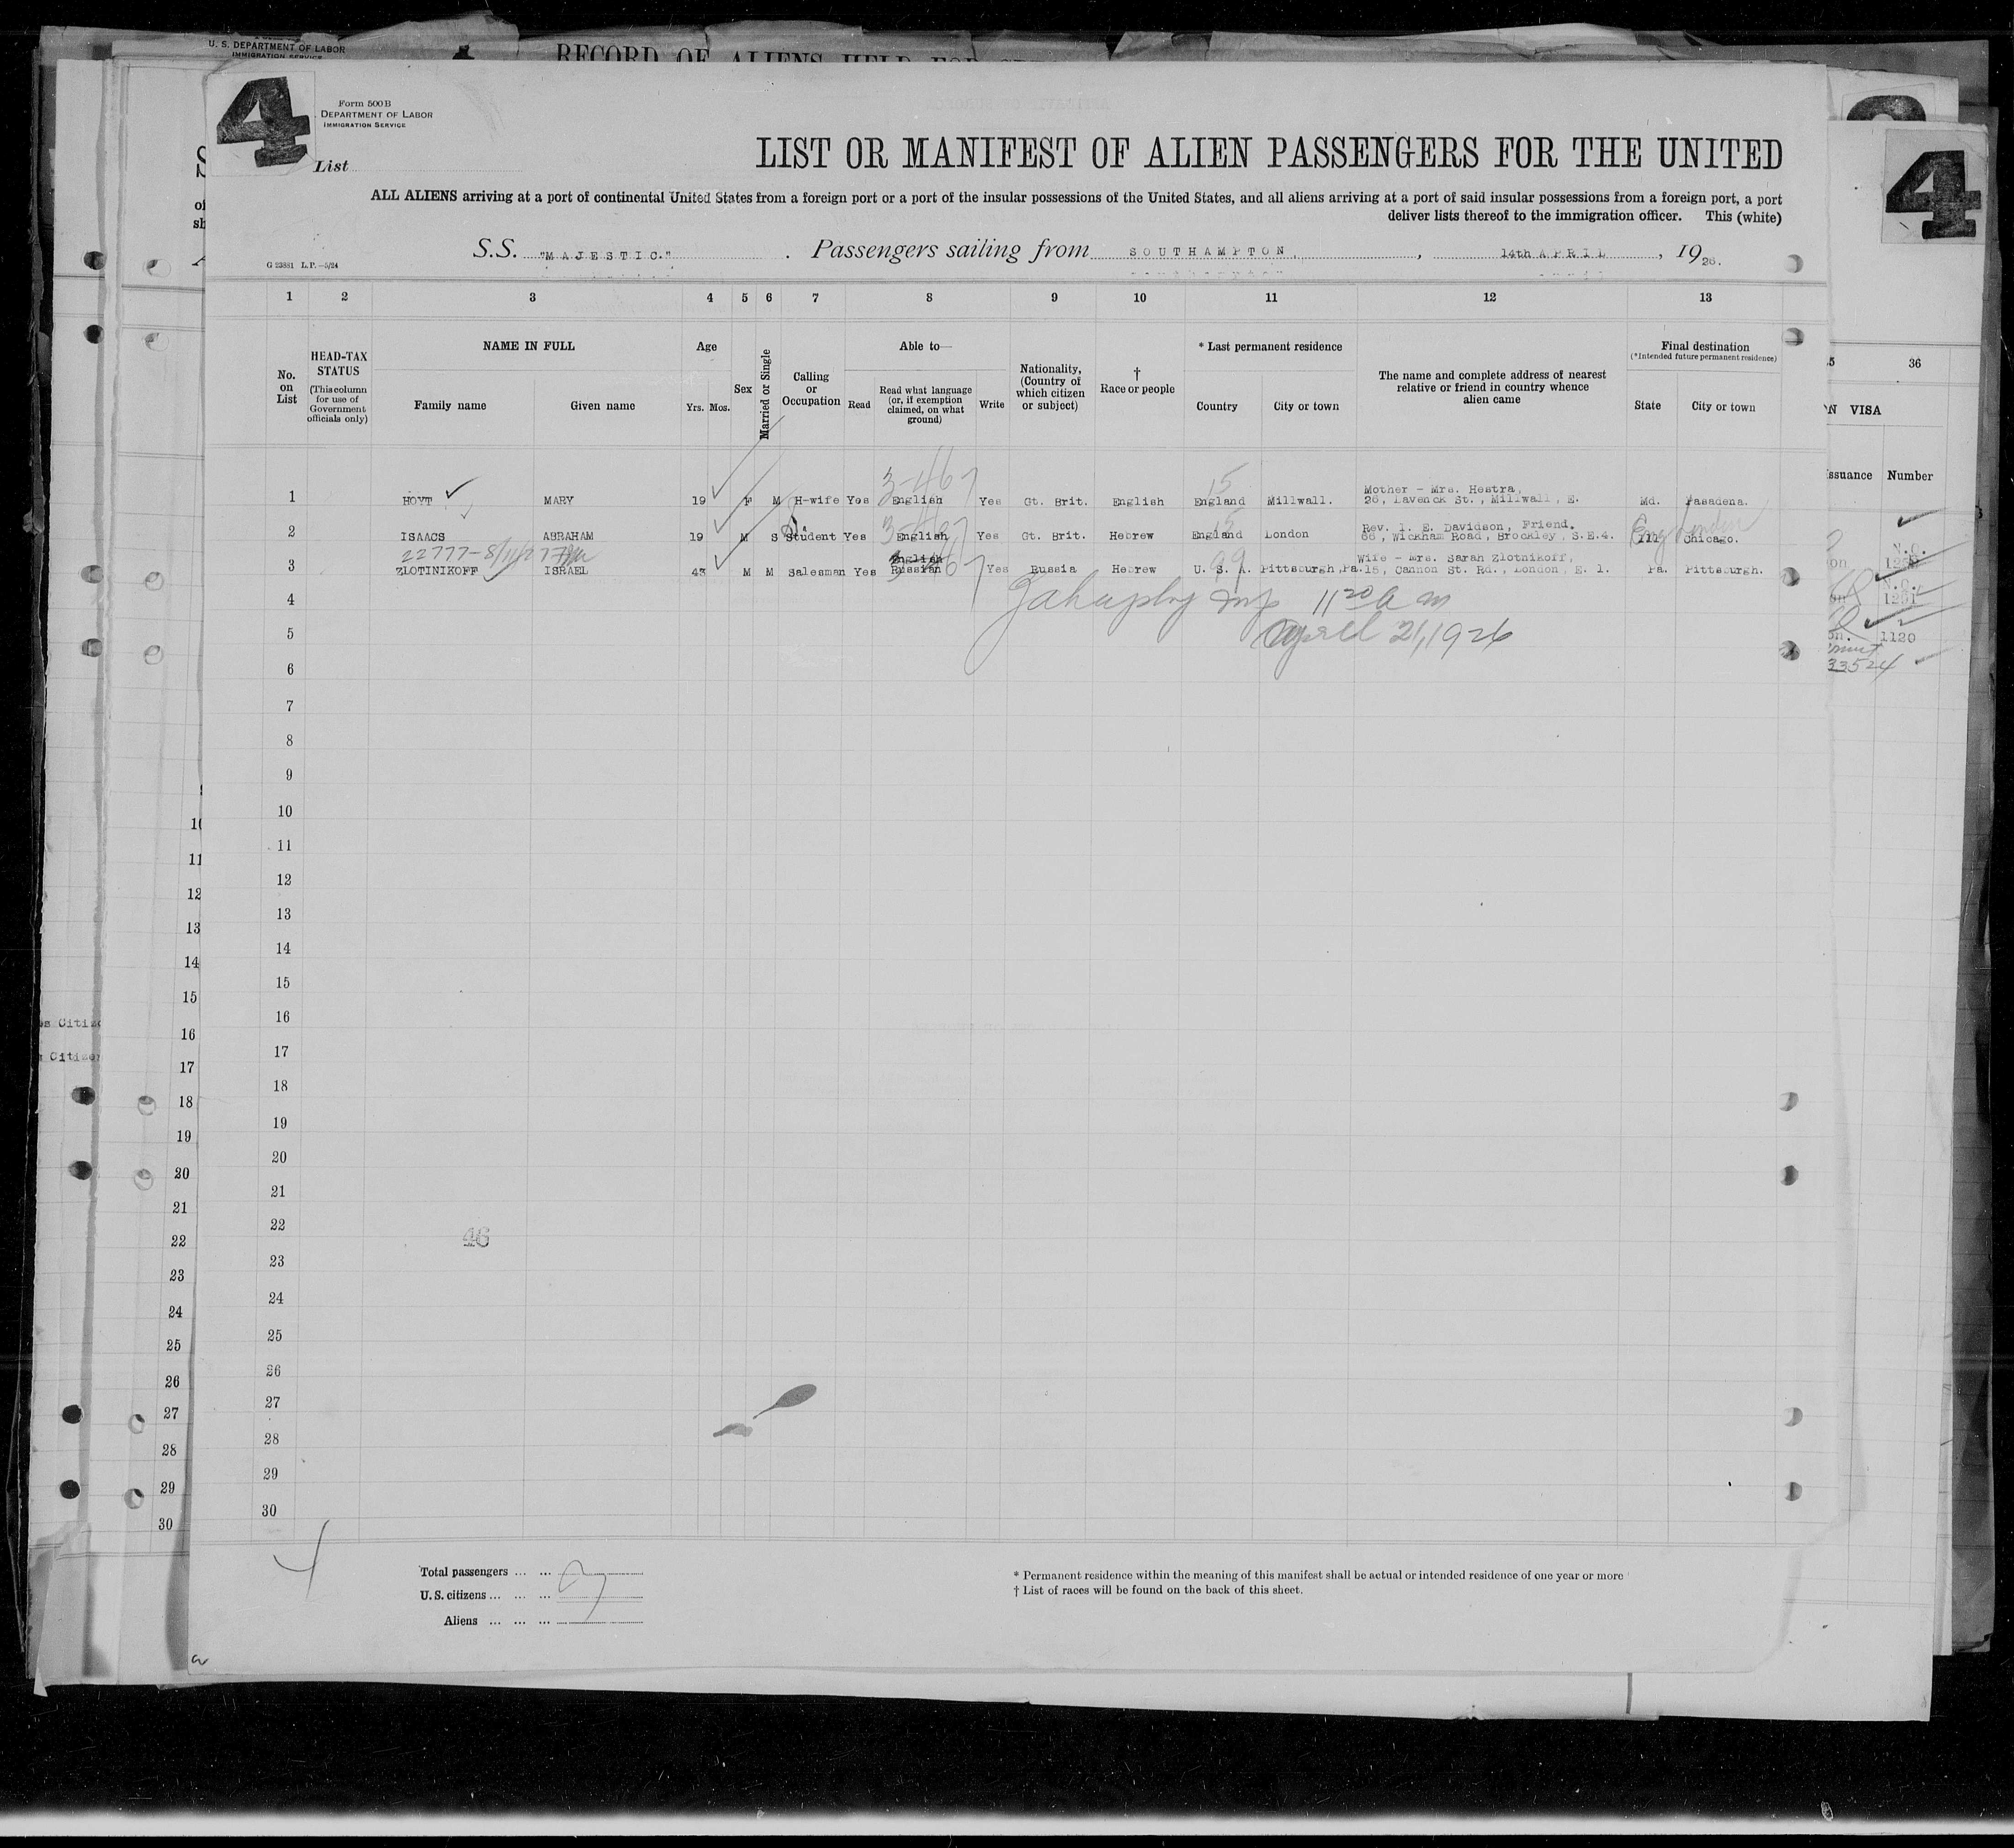 U. S. DEPARTMENT OF LABOR
IMMIGRATION SERVICE
RECORD OF ALIENS HELD FOR
4
Form 500 B
DEPARTMENT OF LABOR
IMMIGRATION SERVICE
List
4
LIST OR MANIFEST OF ALIEN PASSENGERS FOR THE UNITED
ALL ALIENS arriving at a port of continental United States from a foreign port or a port of the insular possessions of the United States, and all aliens arriving at a port of said insular possessions from a foreign port, a port
deliver lists thereof to the immigration officer. This (white)
S.S. "MAJESTIC." . Passengers sailing from SOUTHAMPTON. , 14th APRIL , 1926.
G 23881 L.P.—5/24
1 2 3 4 5 6 7 8 9 10 11 12 13
No. on List
HEAD-TAX STATUS
(This column for use of Government officials only)
NAME IN FULL
Family name Given name
Age
Yrs. Mos.
Sex
Married or Single
Calling or Occupation
Able to—
Read
Read what language (or, if exemption claimed, on what ground)
Write
Nationality, (Country of which citizen or subject)
† Race or people
* Last permanent residence
Country City or town
The name and complete address of nearest relative or friend in country whence alien came
Final destination
(*Intended future permanent residence)
State City or town
36
VISA
Number
3-467 15
1 HOYT MARY 19 F M H-wife Yes English Yes Gt. Brit. English England Millwall. Mother - Mrs. Hestra, 26, Lavenck St., Millwall, E. Md. Pasadena.
2 ISAACS ABRAHAM 19 M S Student Yes English Yes Gt. Brit. Hebrew England London Rev. I. E. Davidson, Friend. 66, Wickham Road, Brockley, S.E.4. Ill. Chicago.
22777-8/11/27
3 ZLOTINIKOFF ISRAEL 43 M M Salesman Yes English Russian Yes Russia Hebrew U. S. A. Pittsburgh, Pa. Wife - Mrs. Sarah Zlotnikoff, 15, Cannon St. Rd., London, E. 1. Pa. Pittsburgh.
99
11 20 a m
April 21, 1926
N.Q.
1251
1120
33524
4
5
6
7
8
9
10
11
12
13
14
15
16
17
18
19
20
21
22
46
23
24
25
26
27
28
29
30
Total passengers ... ...
U. S. citizens ... ... ...
Aliens ... ... ...
* Permanent residence within the meaning of this manifest shall be actual or intended residence of one year or more
† List of races will be found on the back of this sheet.